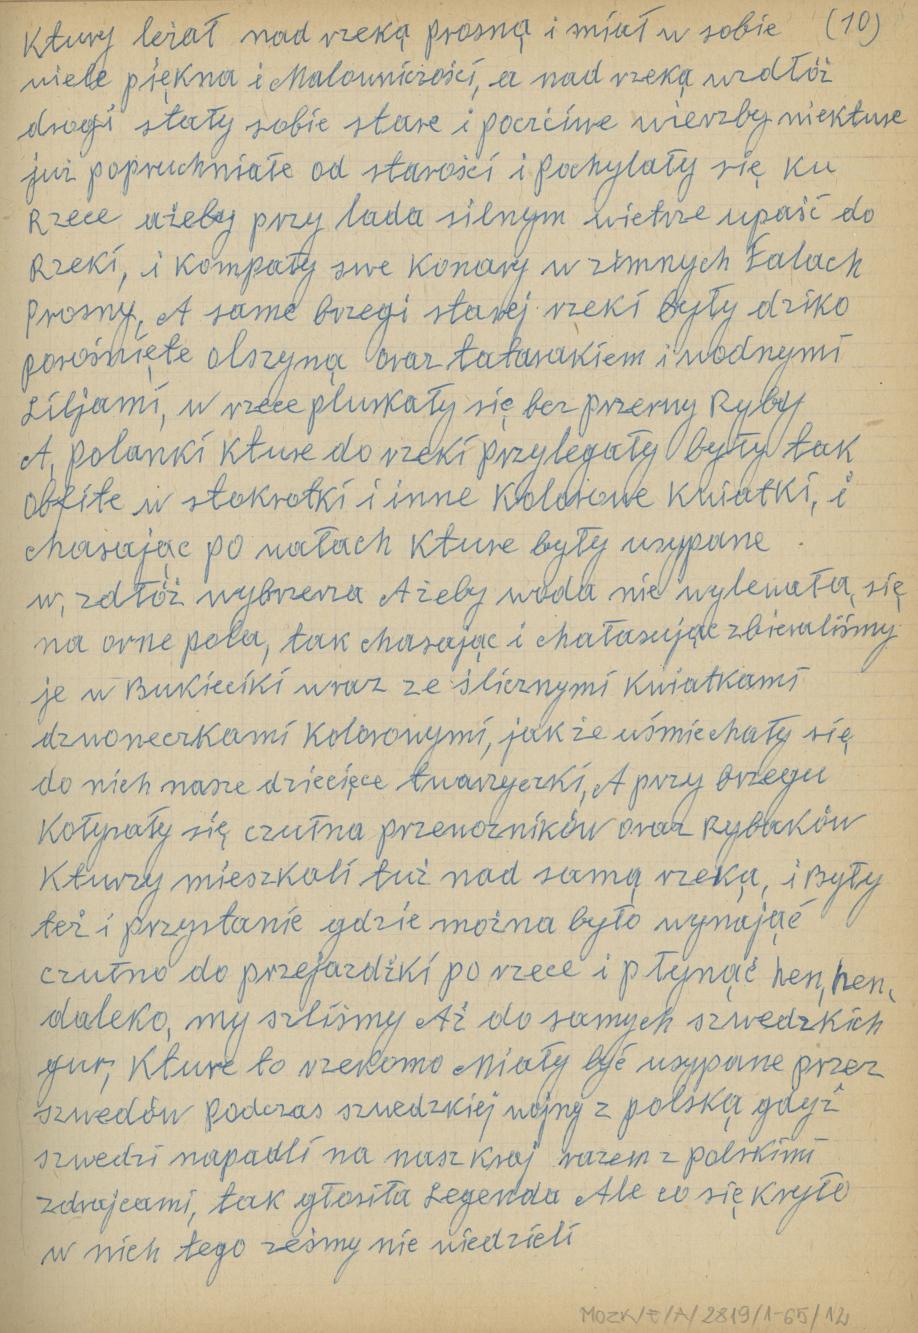 Ktury leżał nad rzeką prosną i miał w sobie (10)
wiele piękna i Malowniczości, a nad rzeką wzdłóż
drogi stały sobie stare i poczciwe wierzby niekture
już popruchniałe od starości i pochylały się ku
Rzece ażeby przy lada silnym wietrze upaść do
Rzeki, i kompały swe konary w zimnych Falach
Prosny, A same brzegi starej rzeki były dziko
porośnięte olszyną oraz tatarakiem i wodnymi
Liljami, w rzece pluskały się bez przerwy Ryby
A, polanki kture do rzeki przylegały były tak
obfite w stokrotki i inne kolorowe kwiatki, i
chasając po wałach kture były usypane
w, zdłóż wybrzerza Ażeby woda nie wylewała, się
na orne pola, tak chasając i chałasując zbieraliśmy
je w Bukieciki wraz ze ślicznymi kwiatkami
dzwoneczkami kolorowymi, jak że uśmiechały się
do nich nasze dziecięce twarzyczki, A przy brzegu
Kołysały się czułna przewozników oraz Rybaków
Kturzy mieszkali tuż nad samą rzeką, i Były
też i przystanie gdzie można było wynająć
czułno do przejazdżki po rzece i płynąć hen, hen,
daleko, my szliśmy Aż do samych szwedzkich
gur, Kture to rzekomo Miały być usypane przez
szwedów podczas szwedzkiej wojny z polską gdyż
szwedzi napadli na nasz kraj razem z polskimi
zdrajcami, tak głosiła Legenda Ale co się kryło
w nich tego żeśmy nie wiedzieli
MOZK/E/A/2819/1-65/12